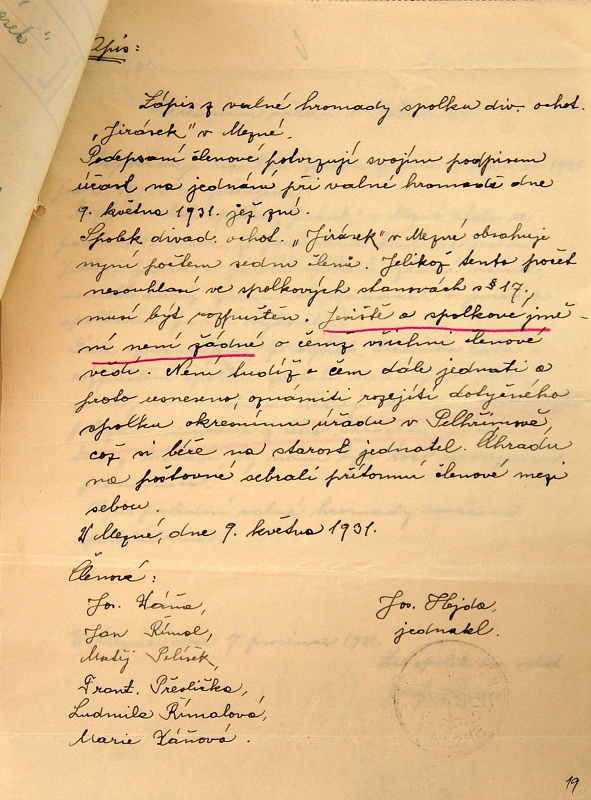 Opis:
Zápis z valné hromady spolku div. ochot.
"Jirásek" v Mezné.
Podepsaní členové potvrzují svojím podpisem
účast na jednání při valné hromadě dne
9. května 1931. jež zní.
Spolek divad. ochot. "Jirásek" v Mezné obsahuje
nyní počtem sedm členů. Jelikož tento počet
nesouhlasí ve spolkových stanovách s § 17,
musí být rozpuštěn. Jeviště a spolkové jmě-
ní není žádné o čemž všichni členové
vědí. Není tudíž o čem dále jednati a
proto usneseno, oznámiti rozejíti dotyčného
spolku okresnímu úřadu v Pelhřimově,
což si béře na starost jednatel. Úhradu
na poštovné sebrali přítomní členové mezi
sebou.
V Mezné, dne 9. května 1931.
Členové:
Jos. Váňa,
Jos. Hejda,
Jan Římal,
jednatel.
Matěj Pelíšek,
Frant. Přeslička,
Ludmila Římalová,
Marie Váňová.
19